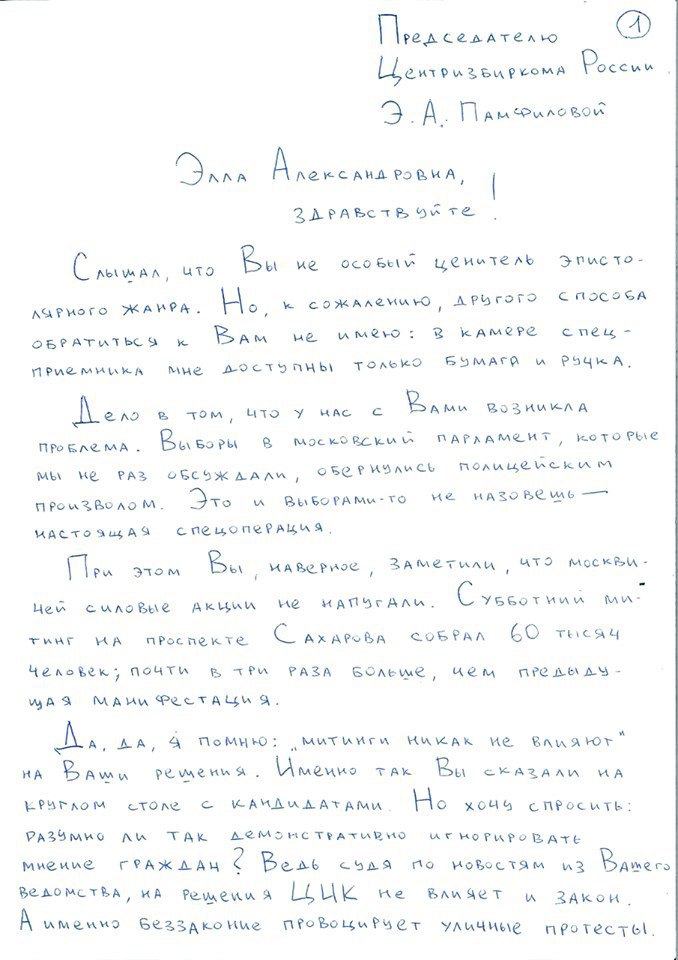 1
Председателю
Центризбиркома России
Э. А. Памфиловой
Элла Александровна,
здравствуйте!
Слышал, что Вы не особый ценитель эписто-
лярного жанра. Но, к сожалению, другого способа
обратиться к Вам не имею: в камере спец-
приемника мне доступны только бумага и ручка.
Дело в том, что у нас с Вами возникла
проблема. Выборы в московский парламент, которые
мы не раз обсуждали, обернулись полицейским
произволом. Это и выборами-то не назовешь —
настоящая спецоперация.
При этом Вы, наверное, заметили, что москви-
чей силовые акции не напугали. Субботний ми-
тинг на проспекте Сахарова собрал 60 тысяч
человек; почти в три раза больше, чем предыду-
щая манифестация.
Да, да, я помню: „митинги никак не влияют"
на Ваши решения. Именно так Вы сказали на
круглом столе с кандидатами. Но хочу спросить:
разумно ли так демонстративно игнорировать
мнение граждан? Ведь судя по новостям из Вашего
ведомства, на решения ЦИК не влияет и закон.
А именно беззаконие провоцирует уличные протесты.